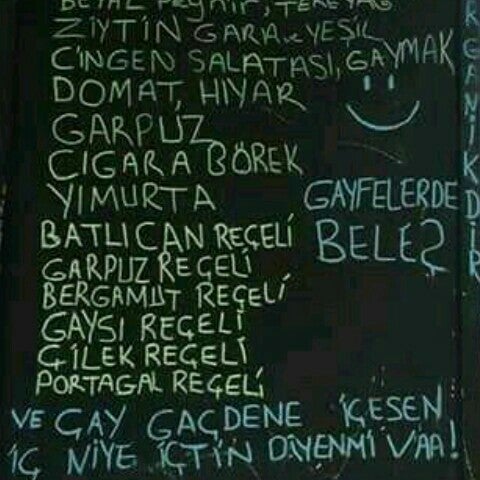 BEYAZ PEYNİR, TEREYAĞ
ZİYTİN GARA ve YEŞİL
ÇİNGEN SALATASI, GAYMAK
DOMAT, HIYAR
GARPUZ
CIGARA BÖREK
YIMURTA
BATLICAN REÇELİ
GARPUZ REÇELİ
BERGAMUT REÇELİ
GAYSI REÇELİ
ÇİLEK REÇELİ
PORTAGAL REÇELİ
GAYFELERDE
BELEŞ
VE ÇAY GAÇDENE İÇESEN
İÇ NİYE İÇTİN DİYENMİ VAA!
RGANİKDİR